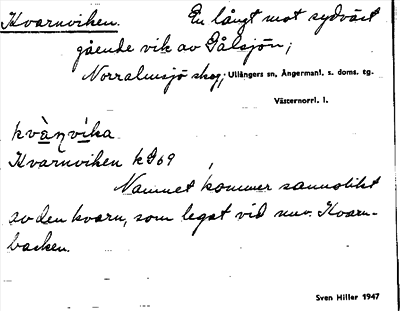 Kvarnviken. En långt mot sydväst
gående vik av Gålsjön;
Norralmsjö skog, Ullångers sn, Ångermanl. s. doms. tg.
Västernorrl. l.
kvà̱ṇví̱ka
Kvarnviken kG69
Namnet kommer sannolikt
av den kvarn, som legat vid nuv. Kvarn-
backen.
Sven Hiller 1947